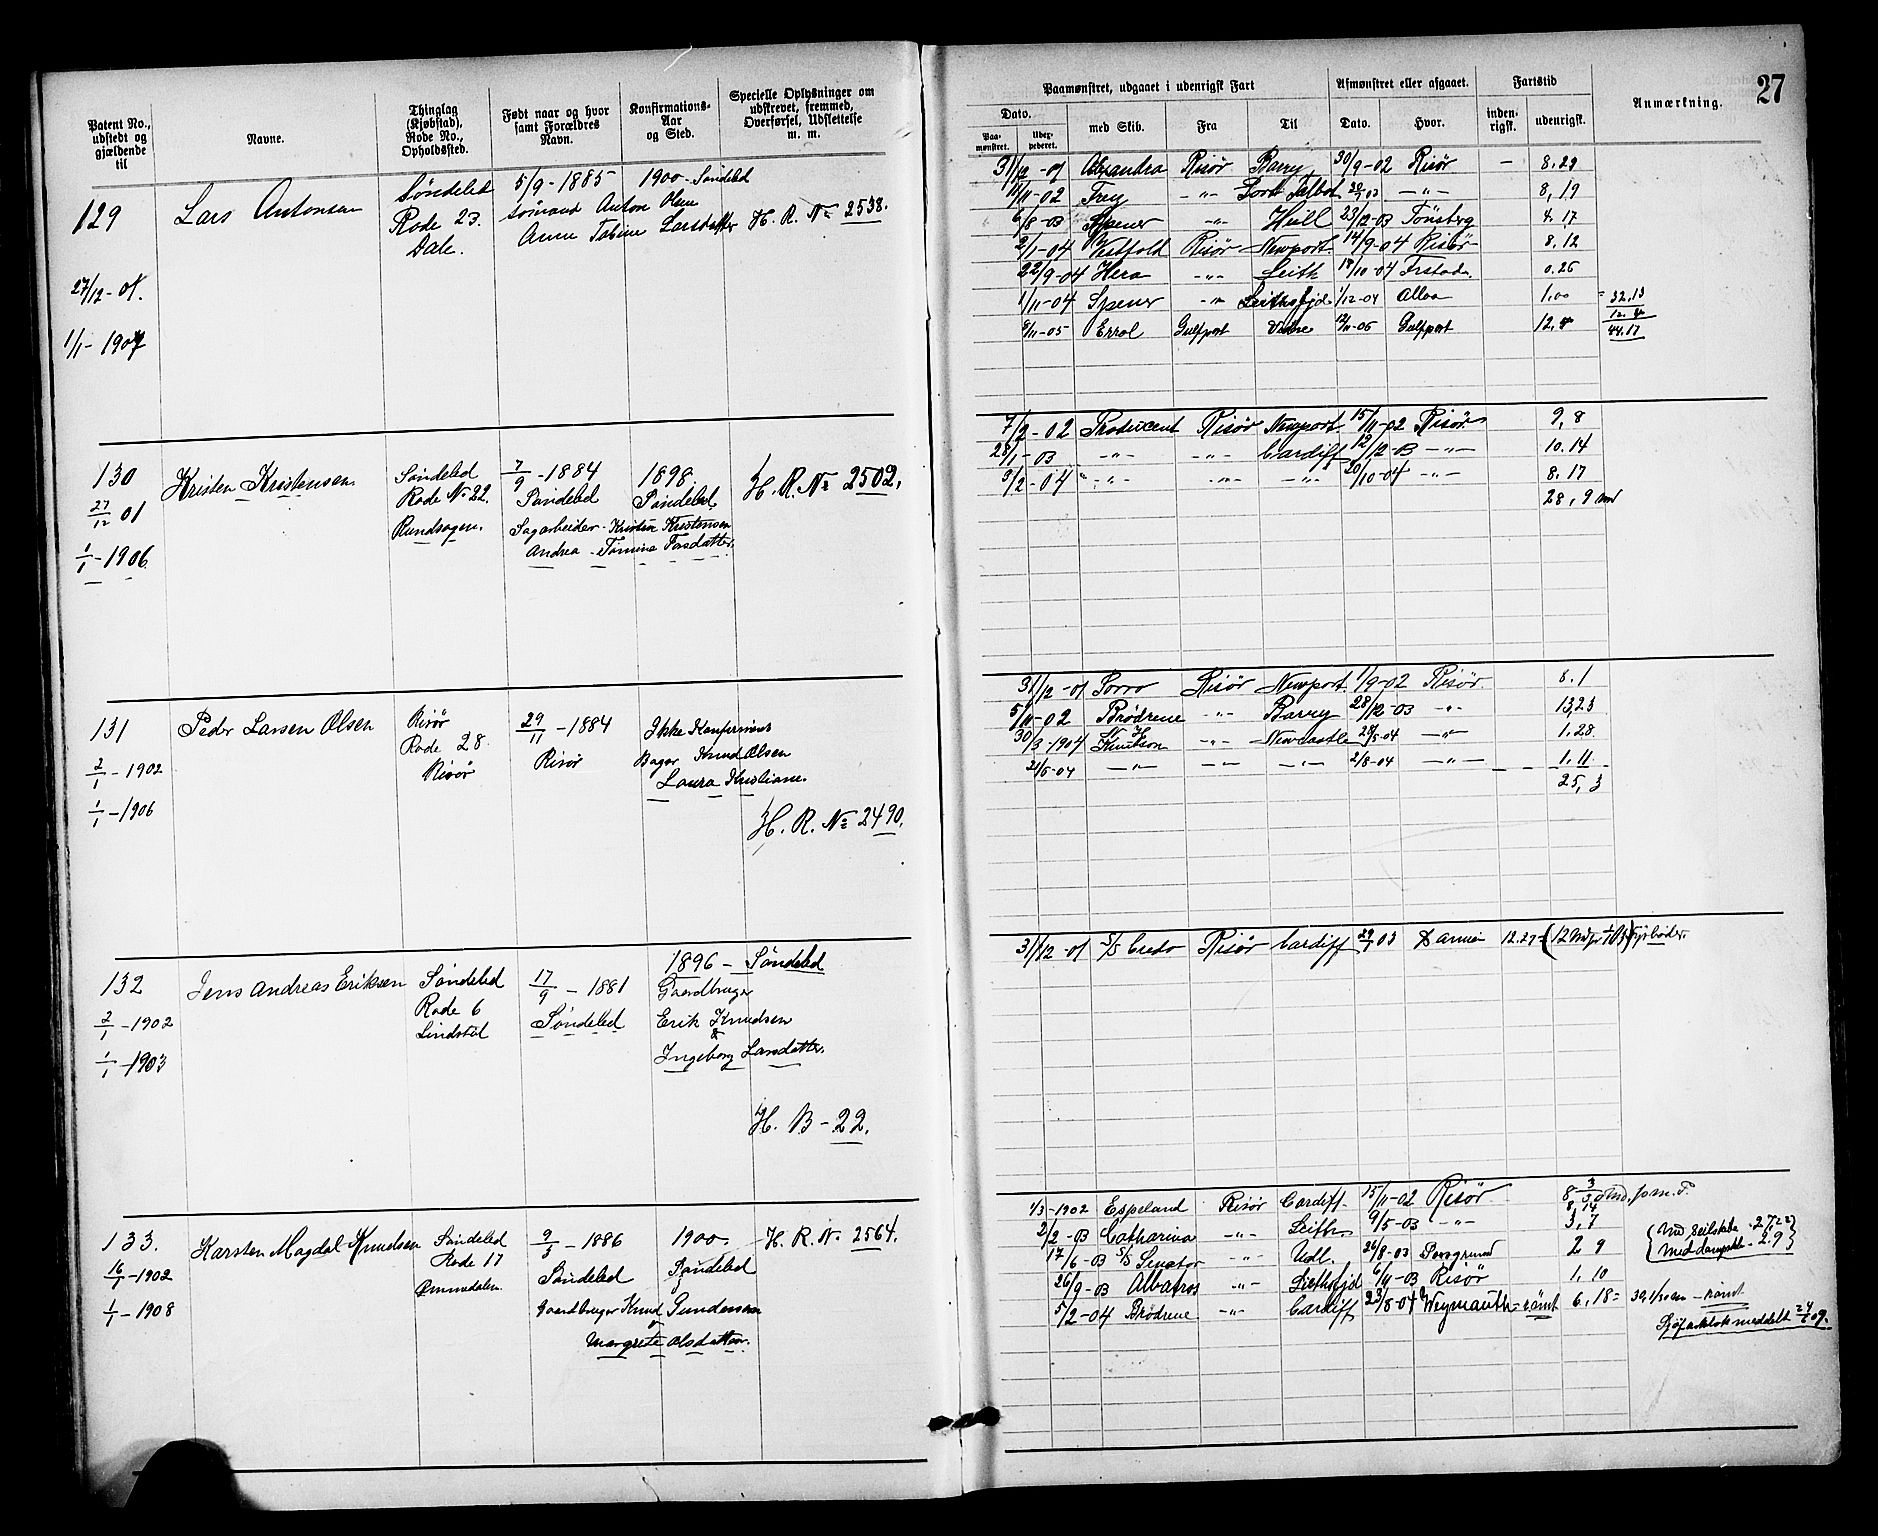 27
Patent No., udstedt og gjældende til
Navne.
Thinglag (Kjøbstad), Rode No., Opholdssted.
Født naar og hvor samt Forældres Navn.
Konfirmations-Aar og Sted.
Specielle Oplysninger om udskrevet, fremmed, Overførsel, Udslettelse m. m.
Paamønstret, udgaaet i udenrigsk Fart
Dato.
Paa-mønstret.
med Skib.
Fra
Til
Afmønstret eller afgaaet.
Dato.
Hvor.
Fartstid
inden-rigsk.
udenrigsk.
Anmærkning.
129
27/12-01.
1/1-1907
Lars Antonsen
Søndeled
Rode 23.
Dale.
5/9-1885 1900-Søndeled
Sømand Anton Olsen
Anne Tobine Larsdatter
H. R. № 2538.
31/12-01 Alexandra Risør Barry 30/9-02 Risør - 8.29
11/11-02 Frey -"- Port Talbot -"- 8,19
6/8-03 Spener -"- Hull 23/12-03 Tönsberg 4.17
2/1-04 Vestfold Risør Newport. 14/9-04 Risør 8,12
22/9-04 Hera -"- Leith 18/10-04 0.26
1/11-04 Spener -"- 1/12-04 Alloa 1,00 = 32,13
8/11-05 Errol Gulfport 12/11-06 Gulfport 12.4 12.4
44.17
130
27/12 01
1/1-1906
Kristen Kristensen
Søndeled
Rode № 22.
7/9-1884
Søndeled
1898
Søndeled
Sagarbeider - Kristen Kristensen
Andrea
H. R. № 2502.
7/2-02 Producent Risør Newport 15/11-02 Risør 9,8
28/1-03 -"- -"- Cardiff 12/12-03 -"- 10.14
9/2-04 -"- -"- -"- 20/10-04 -"- 8.17
28,9
131
2/1-1902
1/1-1906
Peder Larsen Olsen
Risør
Rode 28.
Risør
29/11-1884
Risør
Ikke Konfirmeret
Bager Knud Olsen
Laura Kristiane.
H. R. № 2490.
31/12-01 Porro Risør Newport 1/9-02 Risør 8.1
5/11-02 Brødrene -"- Barry 28/12-03 -"- 13,23
30/3-1904 Knutson -"- Newcastle 28/5-04 -"- 1,28.
21/6-04 -"- -"- -"- 2/8-04 -"- 1.11
25,3
132
2/1-1902
1/1-1903
Jens Andreas Eriksen
Søndeled
Rode 6
Lindstøl
17/9-1881
Søndeled
1896 - Søndeled
Gaardbruger
Erik Knudsen
&
Ingeborg Larsdatter.
H. B-22.
31/12-01 S/S Credo Risør Cardiff 29/1 03 12.27
133.
16/1-1902
1/1-1908
Karsten Magdal Knudsen
Søndeled
Rode 17
9/5-1886
Søndeled
1900
Søndeled
Gaardbruger Knud Gundersen
&
Margrete Olsdatter.
H. R. №. 2564.
1/3-1902 Espeland Risør Cardiff 15/11-02 Risør
2/2-03 Catharina -"- Leith 9/5-03 -"- 3,7
17/6-03 S/S Senator -"- Udl. 26/8-03 Porsgrund 2 9
26/9-03 Albatros -"- 6/11-03 Risør 1,10
5/2-04 Brødrene -"- Cardiff 23/8-04 Weymouth - rømt 6,18